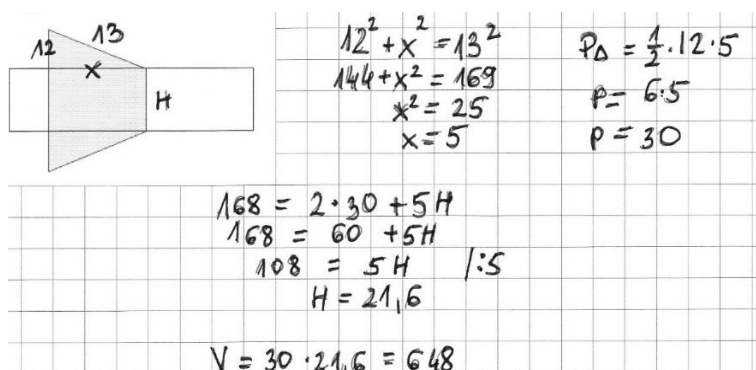 12
13
x
H
12² + x² = 13²
144 + x² = 169
x² = 25
x = 5
P△ = 1/2 · 12 · 5
P = 6 · 5
P = 30
168 = 2 · 30 + 5H
168 = 60 + 5H
108 = 5H /:5
H = 21,6
V = 30 · 21,6 = 648